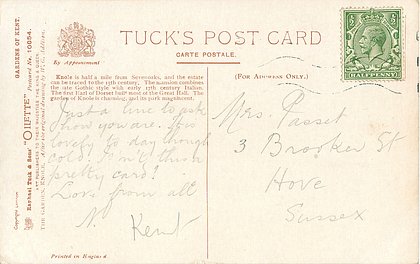 TUCK'S POST CARD
CARTE POSTALE.
By Appointment
(FOR ADDRESS ONLY.)
Knole is half a mile from Sevenoaks, and the estate
can be traced to the 12th century. The mansion combines
the late Gothic style with early 17th century Italian.
The first Earl of Dorset built most of the Great Hall. The
garden of Knole is charming, and its park magnificent.
Just a line to ask
how you are. This
lovely to day though
cold. Isn't this a
pretty card?
Love from all
N.
Kent
Mrs. Passet
3 Brooker St
Hove
Sussex
HALFPENNY
Printed in England
Copyright
Raphael Tuck & Sons' "OILETTE" Postcard No. 10654.
GARDENS OF KENT.
ART PUBLISHERS TO THEIR MAJESTIES THE KING & QUEEN
THE GARDEN, KNOLE.